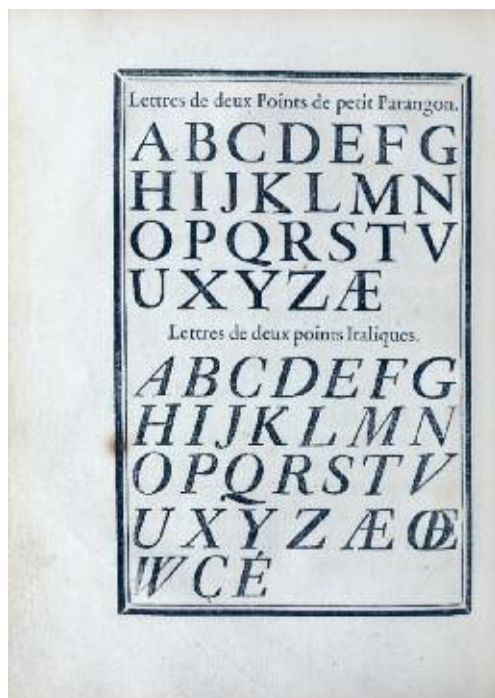 Lettres de deux Points de petit Parangon.
ABCDEFG
HIJKLMN
OPQRSTV
UXYZÆ
Lettres de deux points Italiques.
ABCDEFG
HIJKLMN
OPQRSTV
UXYZÆŒ
WÇÉ